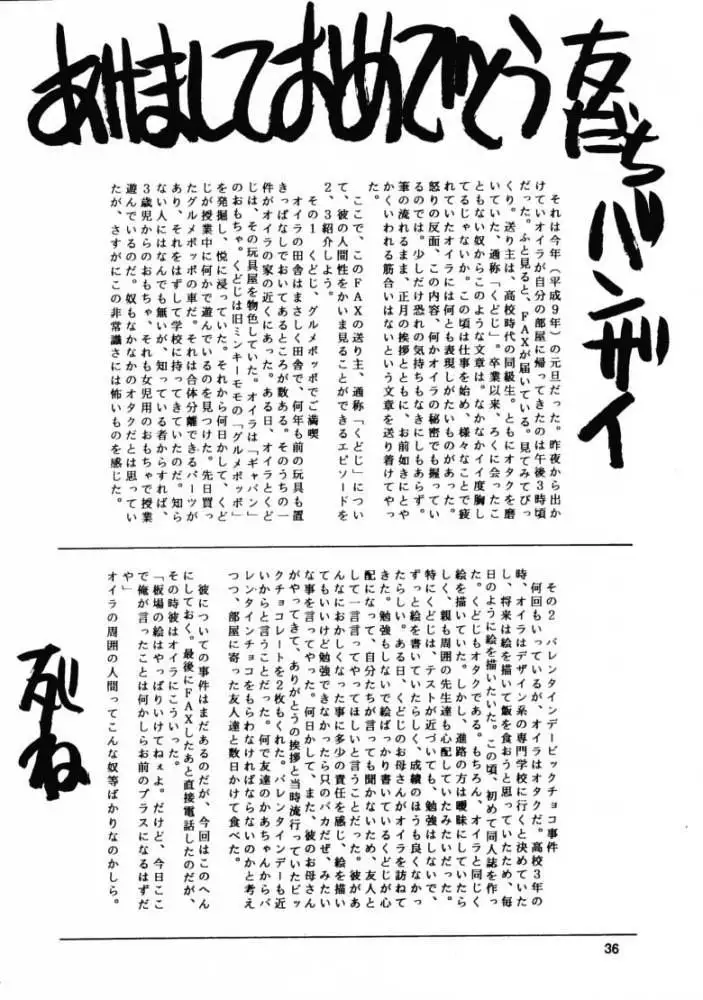 あけましておめでとう
友だち
バンザイ
それは今年(平成9年)の元旦だった。昨夜から出か
けていたオイラが自分の部屋に帰ってきたのは午後3時頃
だった。ふと見ると、FAXが届いている。見てみてびっ
くり。送り主は、高校時代の同級生。ともにオタクを磨
いていた、通称「くどじ」。卒業以来、ろくに会ったこ
ともない奴からこのような文章は。なかなかイイ度胸し
てるじゃないか。この頃は仕事を始め、様々なことで疲
れていたオイラには何とも表現しがたいものがあった。
怒りの反面、この内容、何かオイラの秘密でも握ってい
るのでは。少しだけ恐れの気持ちもなきにしもあらず。
筆の流れるまま、正月の挨拶とともに、お前如きにとや
かくいわれる筋合いはないという文章を送り着けてやっ
た。
ここで、このFAXの送り主、通称「くどじ」につい
て、彼の人間性をかいま見ることができるエピソードを
2、3紹介しよう。
その1 くどじ、グルメポッポでご満喫
オイラの田舎はまさしく田舎で、何年も前の玩具も置
きっぱなしでおいてあるところが数ある。そのうちの一
件がオイラの家の近くにあった。ある日、オイラとくど
じは、その玩具屋を物色していた。オイラは「ギャバン」
のおもちゃ。くどじは旧ミンキーモモの「グルメポッポ」
を発掘し、悦に浸っていた。それから何日かして、くど
じが授業中に何かで遊んでいるのを見つけた。先日買っ
たグルメポッポの車だ。それは合体分離できるパーツが
あり、それをはずして学校に持ってきていたのだ。知ら
ない人にはなんでも無いが、知っている者からすれば、
3歳児からのおもちゃ、それも女児用のおもちゃで授業
遊んでいるのだ。奴もなかなかのオタクだとは思ってい
たが、さすがにこの非常識さには怖いものを感じた。
その2 バレンタインデービックチョコ事件
何回もいっているが、オイラはオタクだ。高校3年の
時、オイラはデザイン系の専門学校に行くと決めていた
し、将来は絵を描いて飯を食おうと思っていたため、毎
日のように絵を描いたいた。この頃、初めて同人誌を作っ
た。くどじもオタクである。もちろん、オイラと同じく
絵を描いていた。しかし、進路の方は曖昧にしていたら
しく、親も周囲の先生達も心配していたみたいだった。
特にくどじは、テストが近づいても、勉強はしないで、
ずっと絵を書いていたらしく、成績のほうも良くなかっ
たらしい。ある日、くどじのお母さんがオイラを訪ねて
きた。勉強もしないで絵ばっかり書いているくどじが心
配になって、自分たちが言っても聞かないため、友人と
して一言言ってやってほしいと言うことだった。彼があ
んなにおかしくなった事に多少の責任を感じ、絵を描い
てもいいけど勉強できなかったら只のバカだぜ、みたい
な事を言ってやった。何日かして、また、彼のお母さん
がやってきて、ありがとうの挨拶と当時流行っていたビッ
クチョコレートを2枚もくれた。バレンタインデーも近
いからと言うことだった。何で友達のかあちゃんからバ
レンタインチョコをもらわなければならないのかと考え
つつ、部屋に寄った友人達と数日かけて食べた。
彼についての事件はまだあるのだが、今回はこのへん
にしておく。最後にFAXしたあと直接電話したのだが、
その時彼はオイラにこういった。
「板場の絵はやっぱりいけてねぇよ。だけど、今日ここ
で俺が言ったことは何かしらお前のプラスになるはずだ
や」
オイラの周囲の人間ってこんな奴等ばかりなのかしら。
死ね
36